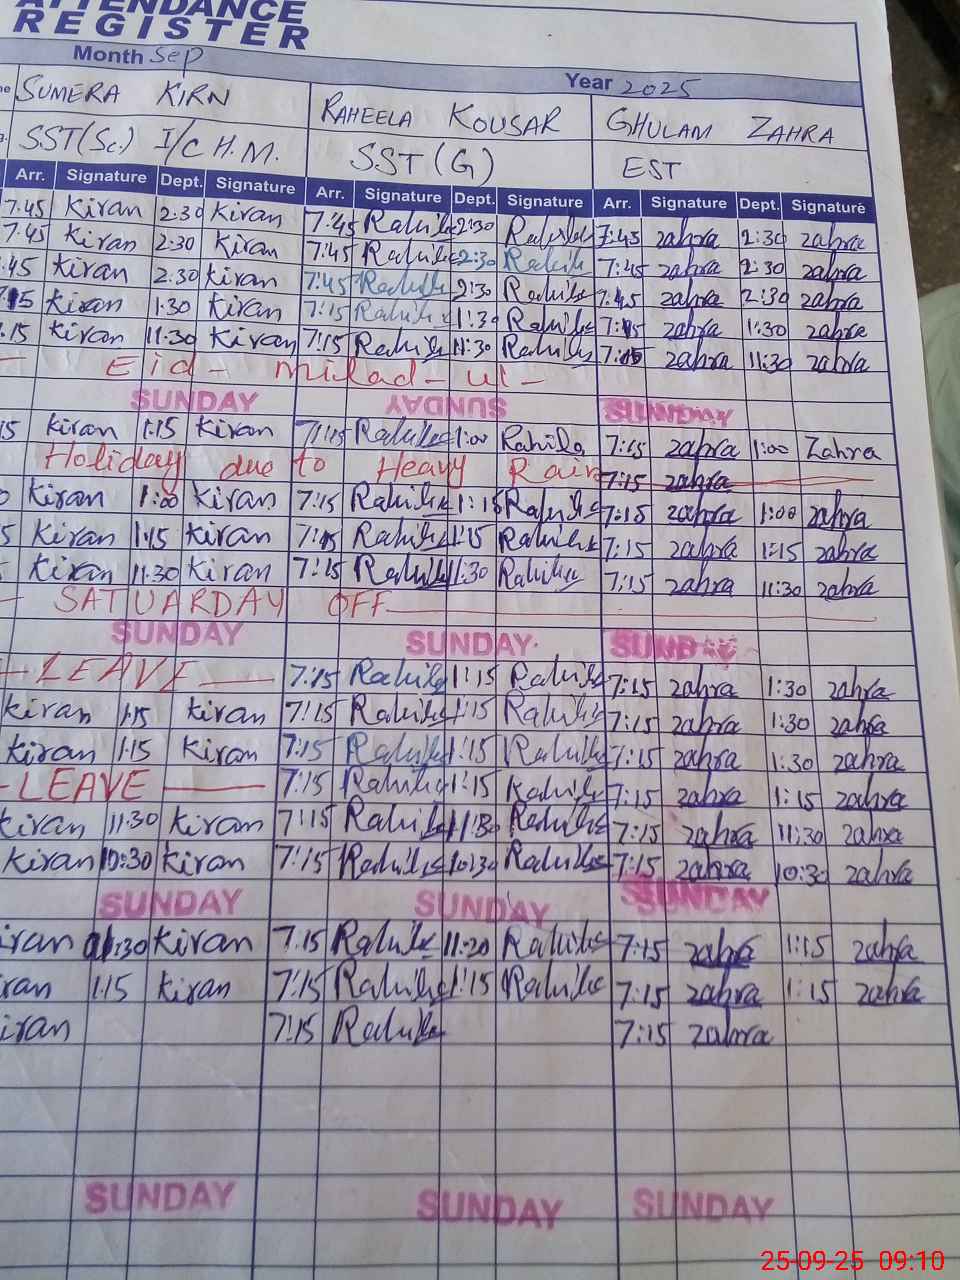 ATTENDANCE
REGISTER
Month Sep
Year 2025
SUMERA KIRN RAHEELA KOUSAR GHULAM ZAHRA
SST(Sc.) I/C H.M. SST (G) EST
Arr. Signature Dept. Signature Arr. Signature Dept. Signature Arr. Signature Dept. Signature
7.45 Kiran 2:30 Kiran 7:45 Rahila 2:30 Rahila 7:45 zahra 2:30 zahra
7.45 Kiran 2:30 Kiran 7:45 Rahila 2:30 Rahila 7:45 zahra 2:30 zahra
.45 Kiran 2:30 Kiran 7:45 Rahila 2:30 Rahila 7:45 zahra 2:30 zahra
15 Kiran 1:30 Kiran 7:15 Rahila 1:30 Rahila 7:15 zahra 1:30 zahra
.15 Kiran 11:30 Kiran 7:15 Rahila 11:30 Rahila 7:15 zahra 11:30 zahra
Eid - milad - ul -
SUNDAY SUNDAY SUNDAY
15 Kiran 1:15 Kiran 7:15 Rahila 1:00 Rahila 7:15 zahra 1:00 Zahra
Holiday due to Heavy Rain 7:15 zahra
Kiran 1:00 Kiran 7:15 Rahila 1:15 Rahila 7:15 zahra 1:00 zahra
5 Kiran 1:15 Kiran 7:15 Rahila 1:15 Rahila 7:15 zahra 1:15 zahra
Kiran 11.30 Kiran 7:15 Rahila 11:30 Rahila 7:15 zahra 11:30 zahra
- SATUARDAY OFF
SUNDAY SUNDAY SUNDAY
- LEAVE 7:15 Rahila 1:15 Rahila 7:15 zahra 1:30 zahra
kiran 1:15 Kiran 7:15 Rahila 1:15 Rahila 7:15 zahra 1:30 zahra
Kiran 1:15 Kiran 7:15 Rahila 1:15 Rahila 7:15 zahra 1:30 zahra
- LEAVE 7:15 Rahila 1:15 Rahila 7:15 zahra 1:15 zahra
kiran 11:30 Kiran 7:15 Rahila 11:30 Rahila 7:15 zahra 11:30 zahra
Kiran 10:30 Kiran 7:15 Rahila 10:30 Rahila 7:15 zahra 10:30 zahra
SUNDAY SUNDAY SUNDAY
iran 30 Kiran 7.15 Rahila 11:20 Rahila 7:15 zahra 1:15 zahra
ran 1:15 Kiran 7:15 Rahila 1:15 Rahila 7:15 zahra 1:15 zahra
iran 7:15 Rahila 7:15 zahra
SUNDAY SUNDAY SUNDAY
25-09-25 09:10